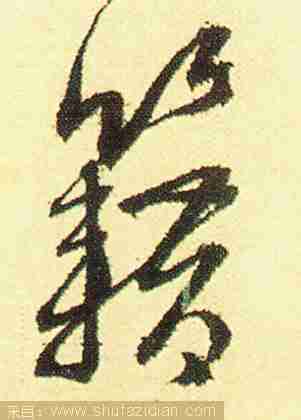 籍
来自：www.shufazidian.com